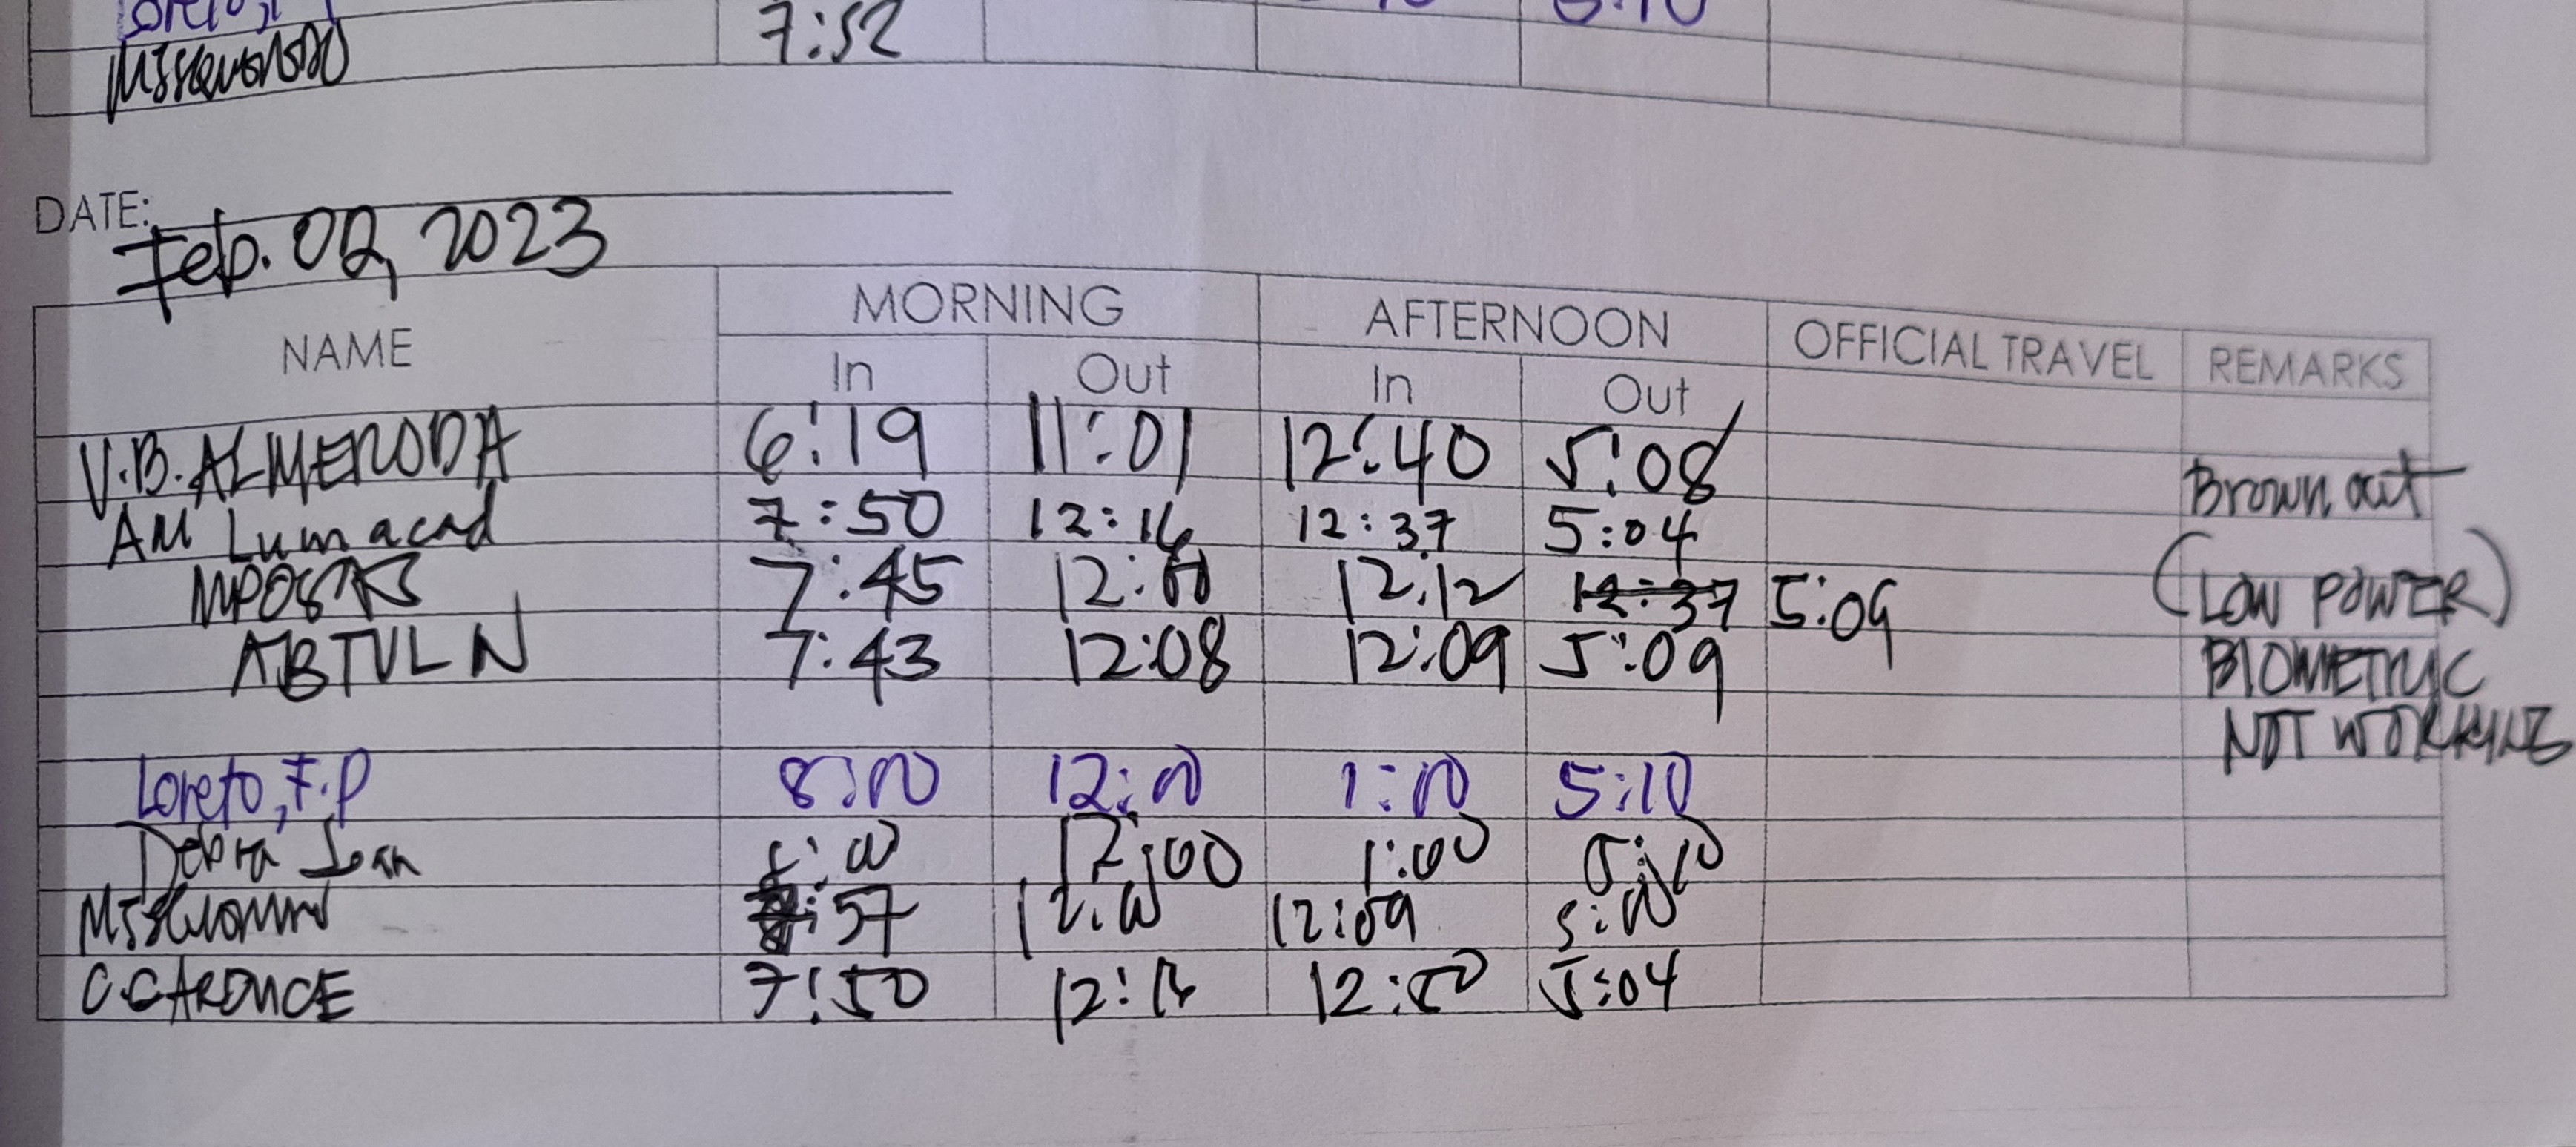 7:52
DATE: Feb. 02, 2023
NAME MORNING AFTERNOON OFFICIAL TRAVEL REMARKS
In Out In Out
V.B. ALMERODA 6:19 11:01 12:40 5:08
Brown out
AM Lumacad 7:50 12:16 12:37 5:04
7:45 12:12 12:37 5:09 (LOW POWER)
ABTULN 7:43 12:08 12:09 5:09 BIOMETRIC
NOT WORKING
Loreto, F.P 8:00 12:00 1:00 5:10
Debra Joan 8:00 12:00 1:00 5:10
:57 12:00 12:09 5:00
7:50 12:50 5:04